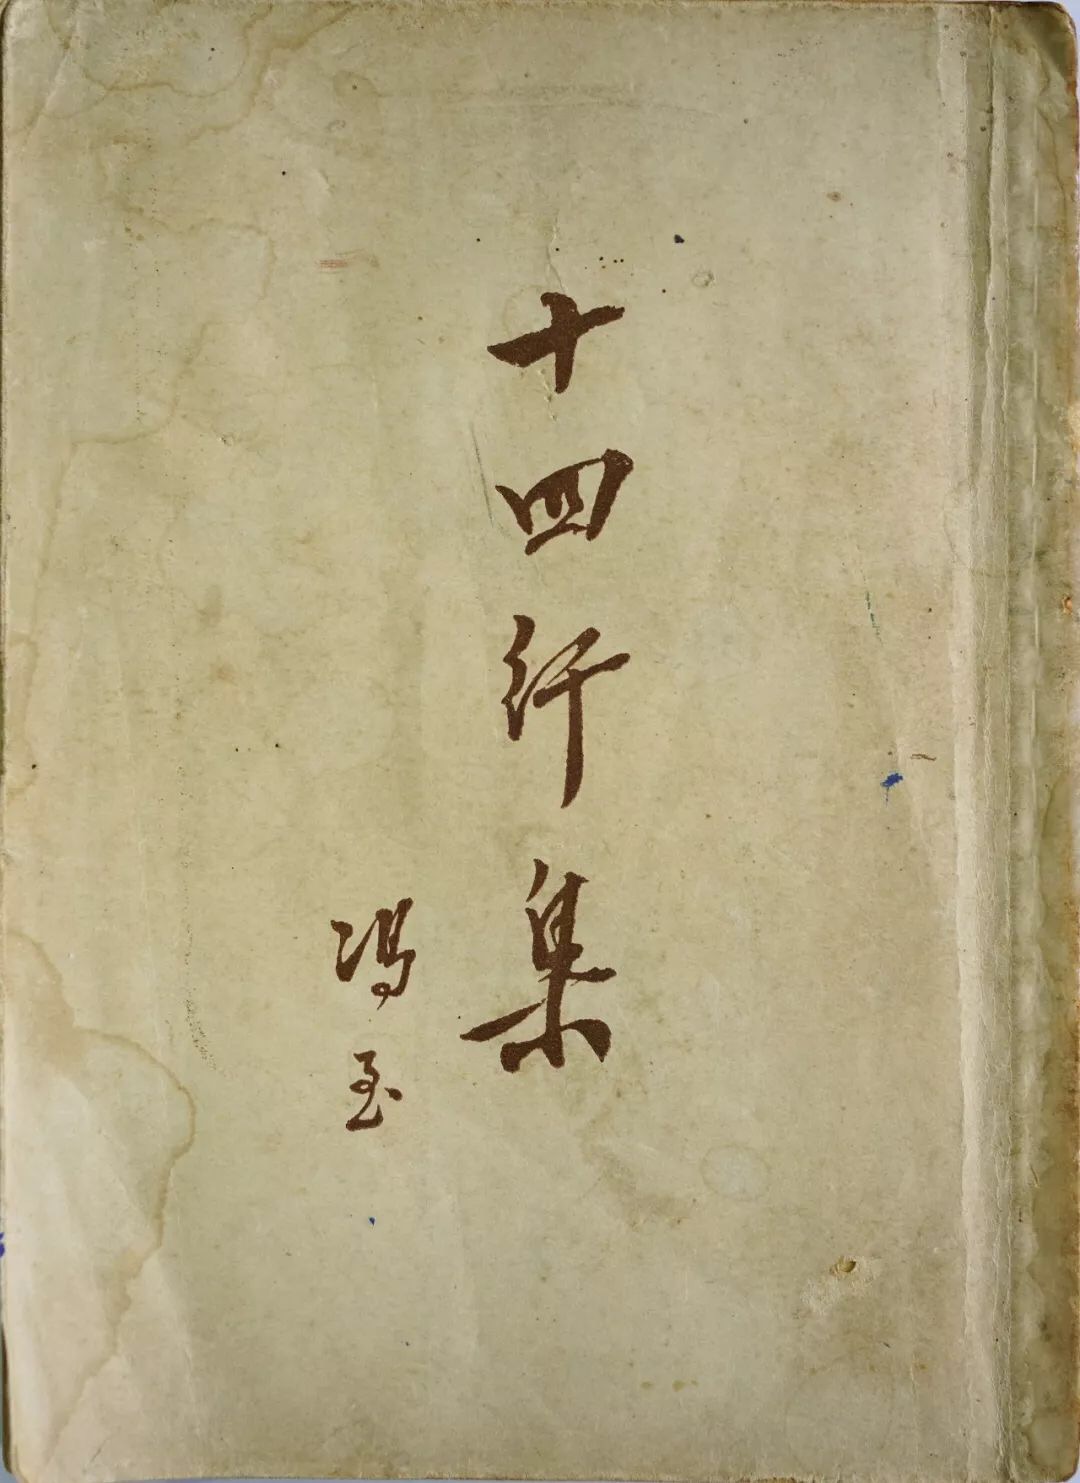 十四行集
冯至